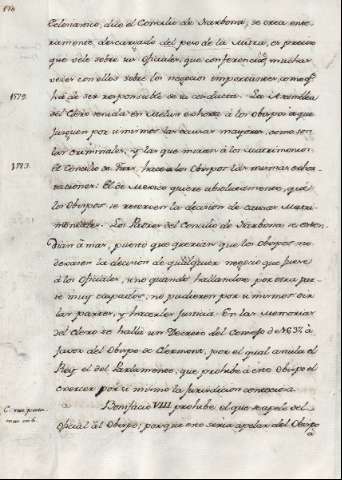 Eclesiastico, dice el Concilio de Narbona, se crea ente-
ramente descargado del peso de la Mitra, es preciso
que vele sobre sus Oficiales, que conferencie muchas
veces con ellos sobre los negocios importantes, como q.e
ha de ser responsable de su conducta. La Asamblea
1579.
del Clero tenida en Melun exhorta à los Obispos à que
Juzguen por si mismos las causas mayores, como son
las criminales, y las que miran à los Matrimonios.
1583.
El Concilio de Tours, hace à los Obispos las mismas exhor-
taciones. El de Mexico quiere absolutamente, que
los Obispos se reserven la decision de causas Matri-
moniales. Los Padres del Concilio de Narbona se esten-
dian à mas, puesto que querian que los Obispos no
dexaran la decision de qualquier negocio que fuese
à los Oficiales, sino quando hallandose por otra par-
te muy ocupados, no pudieren por si mismos oir
las partes, y hacerles Justicia. En las Memorias
del Clero se halla un Decreto del Consejo de 1637 à
favor del Obispo de Clermont, por el qual anula el
Rey el del Parlamento, que prohibe à este Obispo el
exercer por si mismo la Jurisdiccion contenciosa.
Bonifacio VIII prohibe el que se apele del
Oficial al Obispo; porque esto seria apelar del Obispo
à